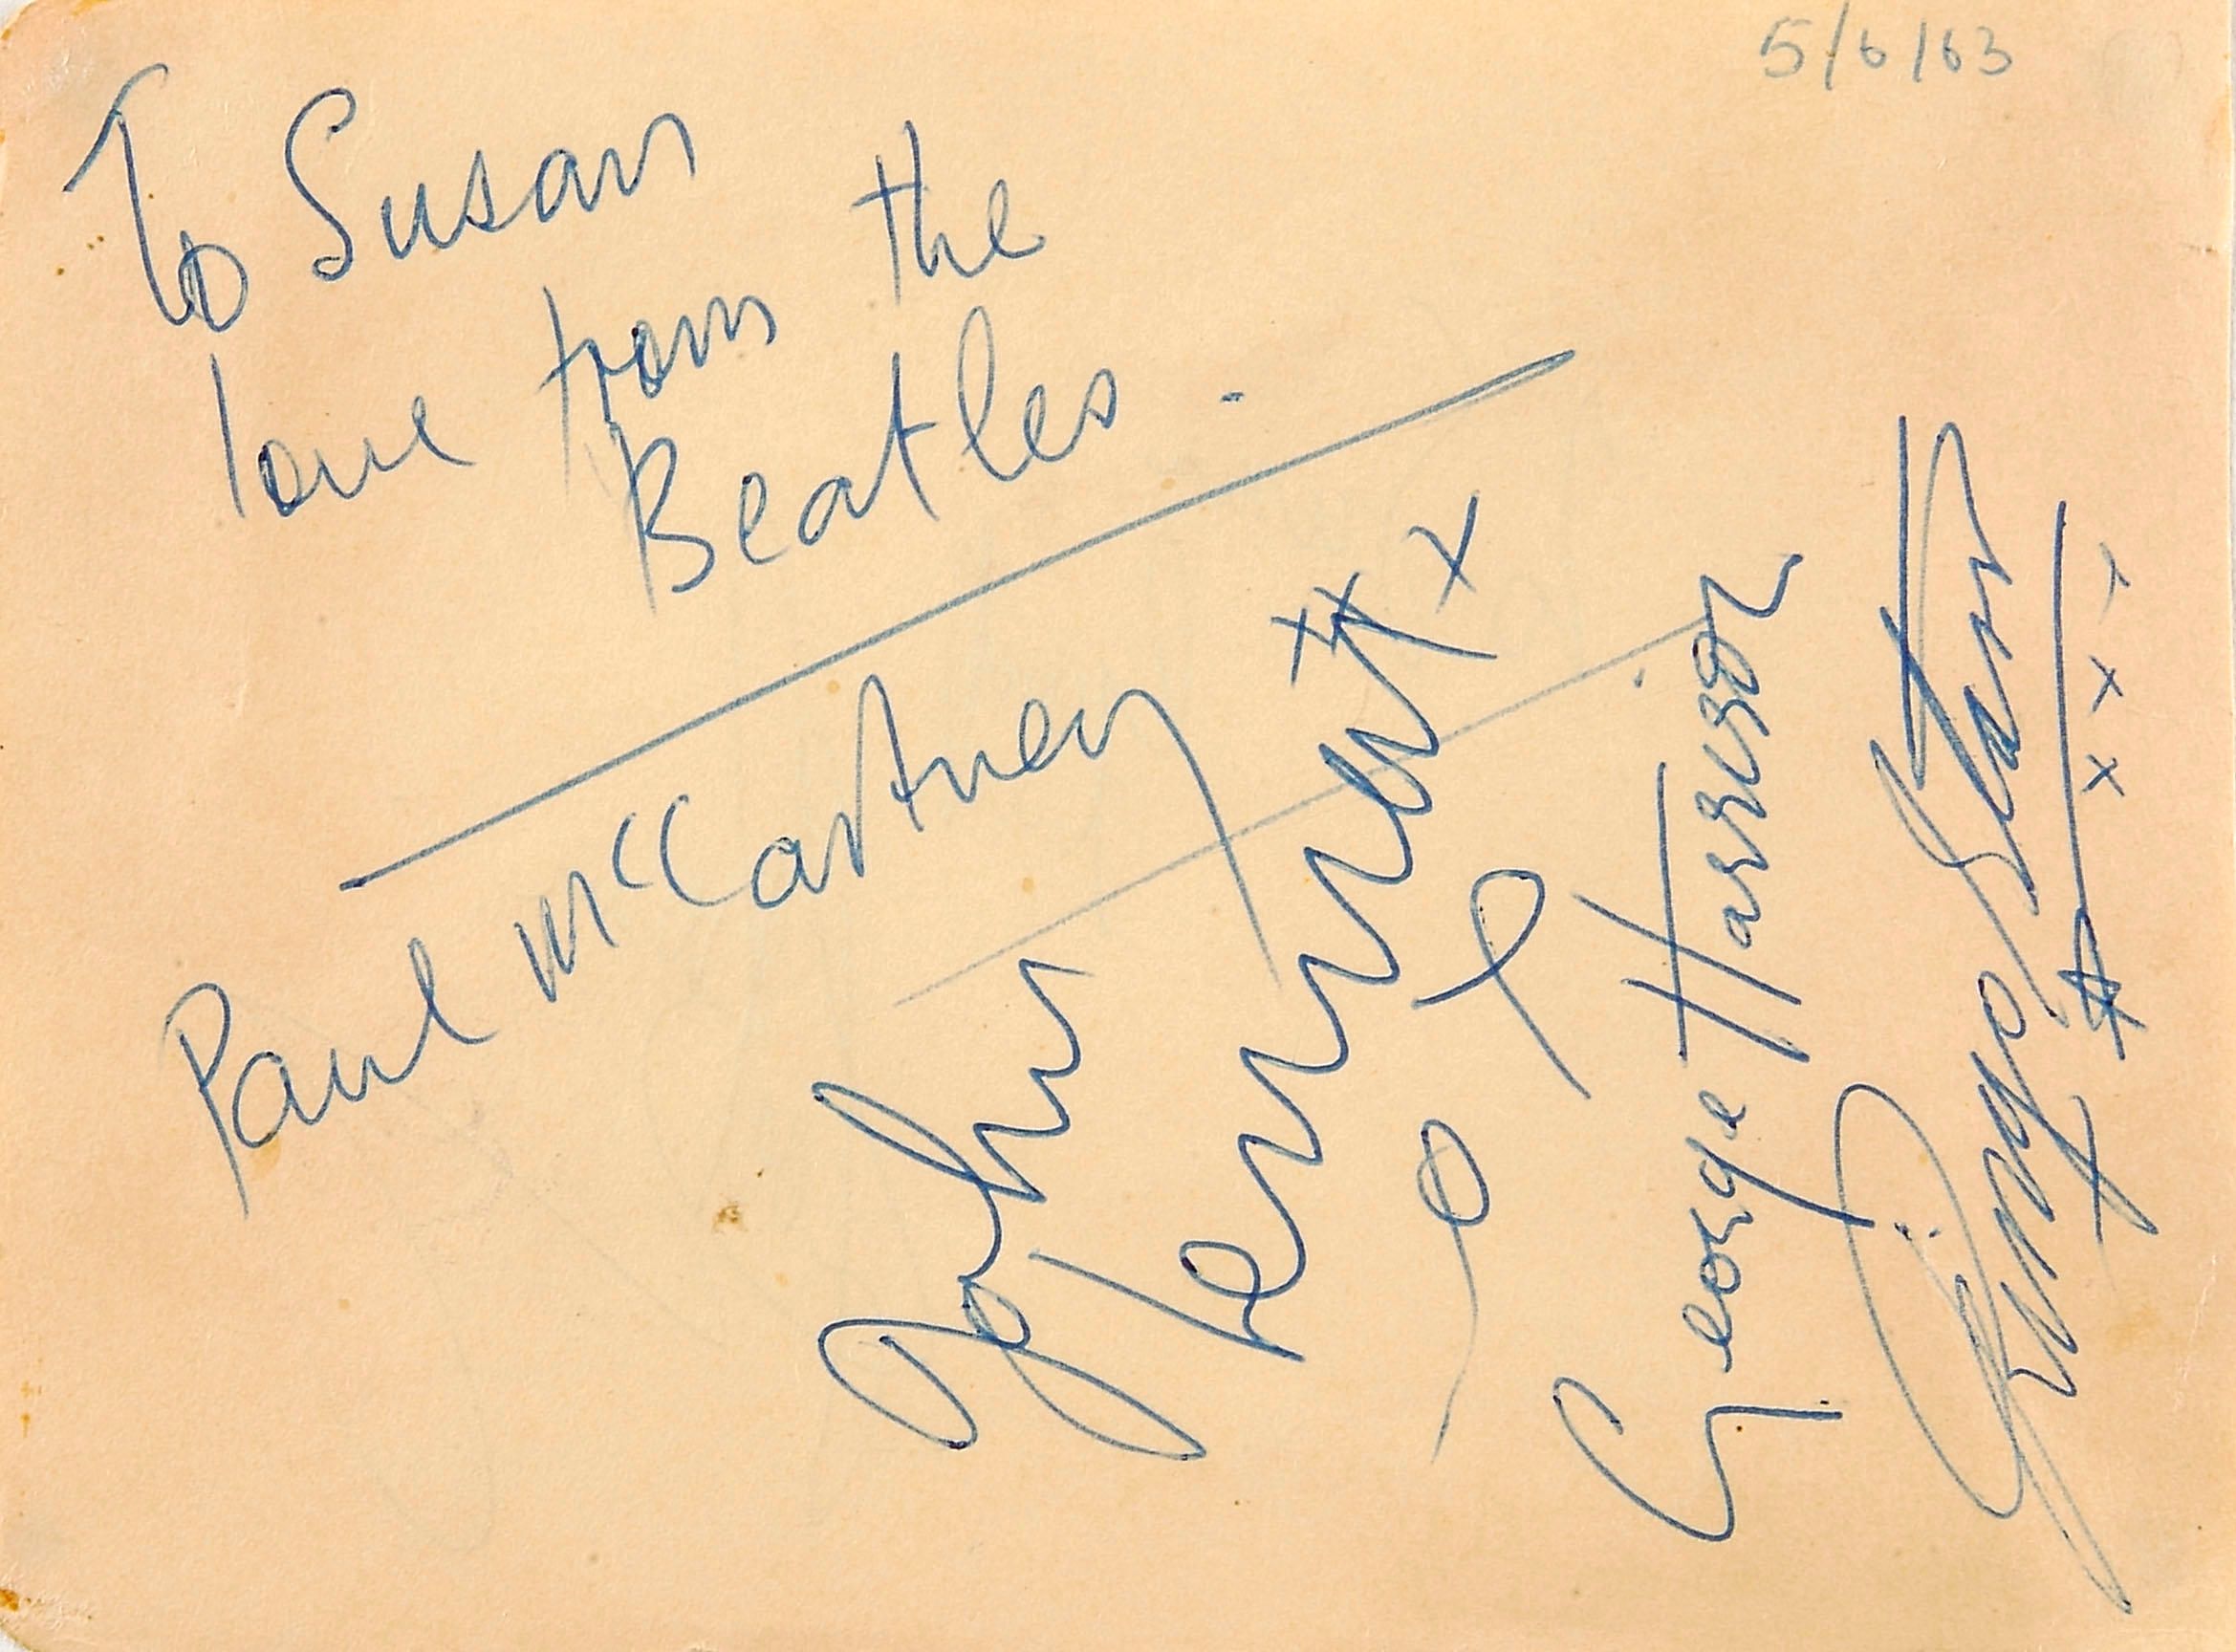 5/6/63
To Susan
love from the
Beatles.
Paul McCartney
John
Lennon
xxx
George Harrison
Ringo Starr
xxx